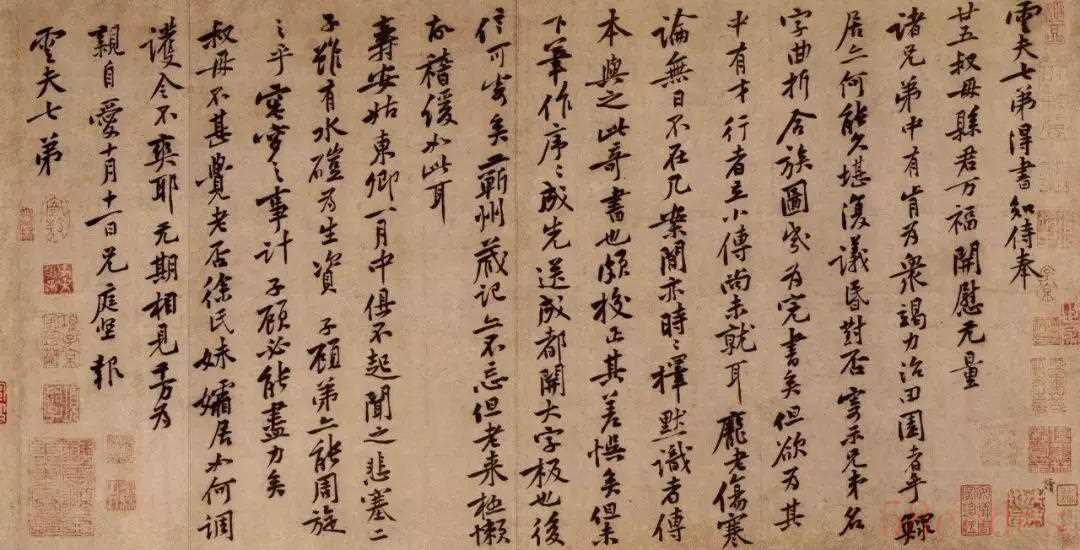 雲夫七弟得書知侍奉
廿五叔母縣君万福開慰无量
諸兄弟中有肯為衆竭力治田園者乎鰥
居亦何能久堪復議昏對否寄示兄弟名
字曲折合族圖歲為完書矣但欲為其
中有才行者立小傳尚未就耳龐老傷寒
論無日不在几案閒亦時〻擇默識者傳
本與之此奇書也頗校正其差悞矣但未
下筆作序〻成先送成都開大字板也後
信可寄矣蘄州藏記亦不忘但老來極懶
故稽緩如此耳
壽安姑東卿一月中俱不起聞之悲塞二
子雖有水磑為生資 子顧弟亦能周旋
之乎 窀穸之事計 子顧必能盡力矣
叔母不甚覺老否徐氏妹孀居如何調
護令不爽耶 无期相見千万為
親自愛十月十一日兄庭堅報
雲夫七弟